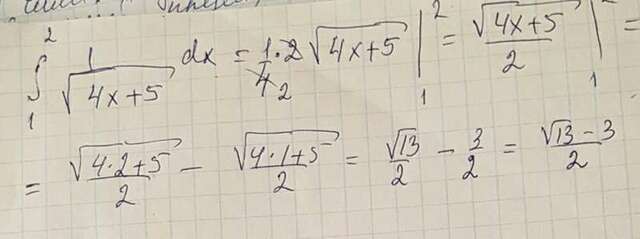 ∫₁² 1/√(4x+5) dx = 1/4₂ · 2 √(4x+5) |₁² = √(4x+5)/2 |₁² =
= √(4·2+5)/2 − √(4·1+5)/2 = √13/2 − 3/2 = (√13 − 3)/2